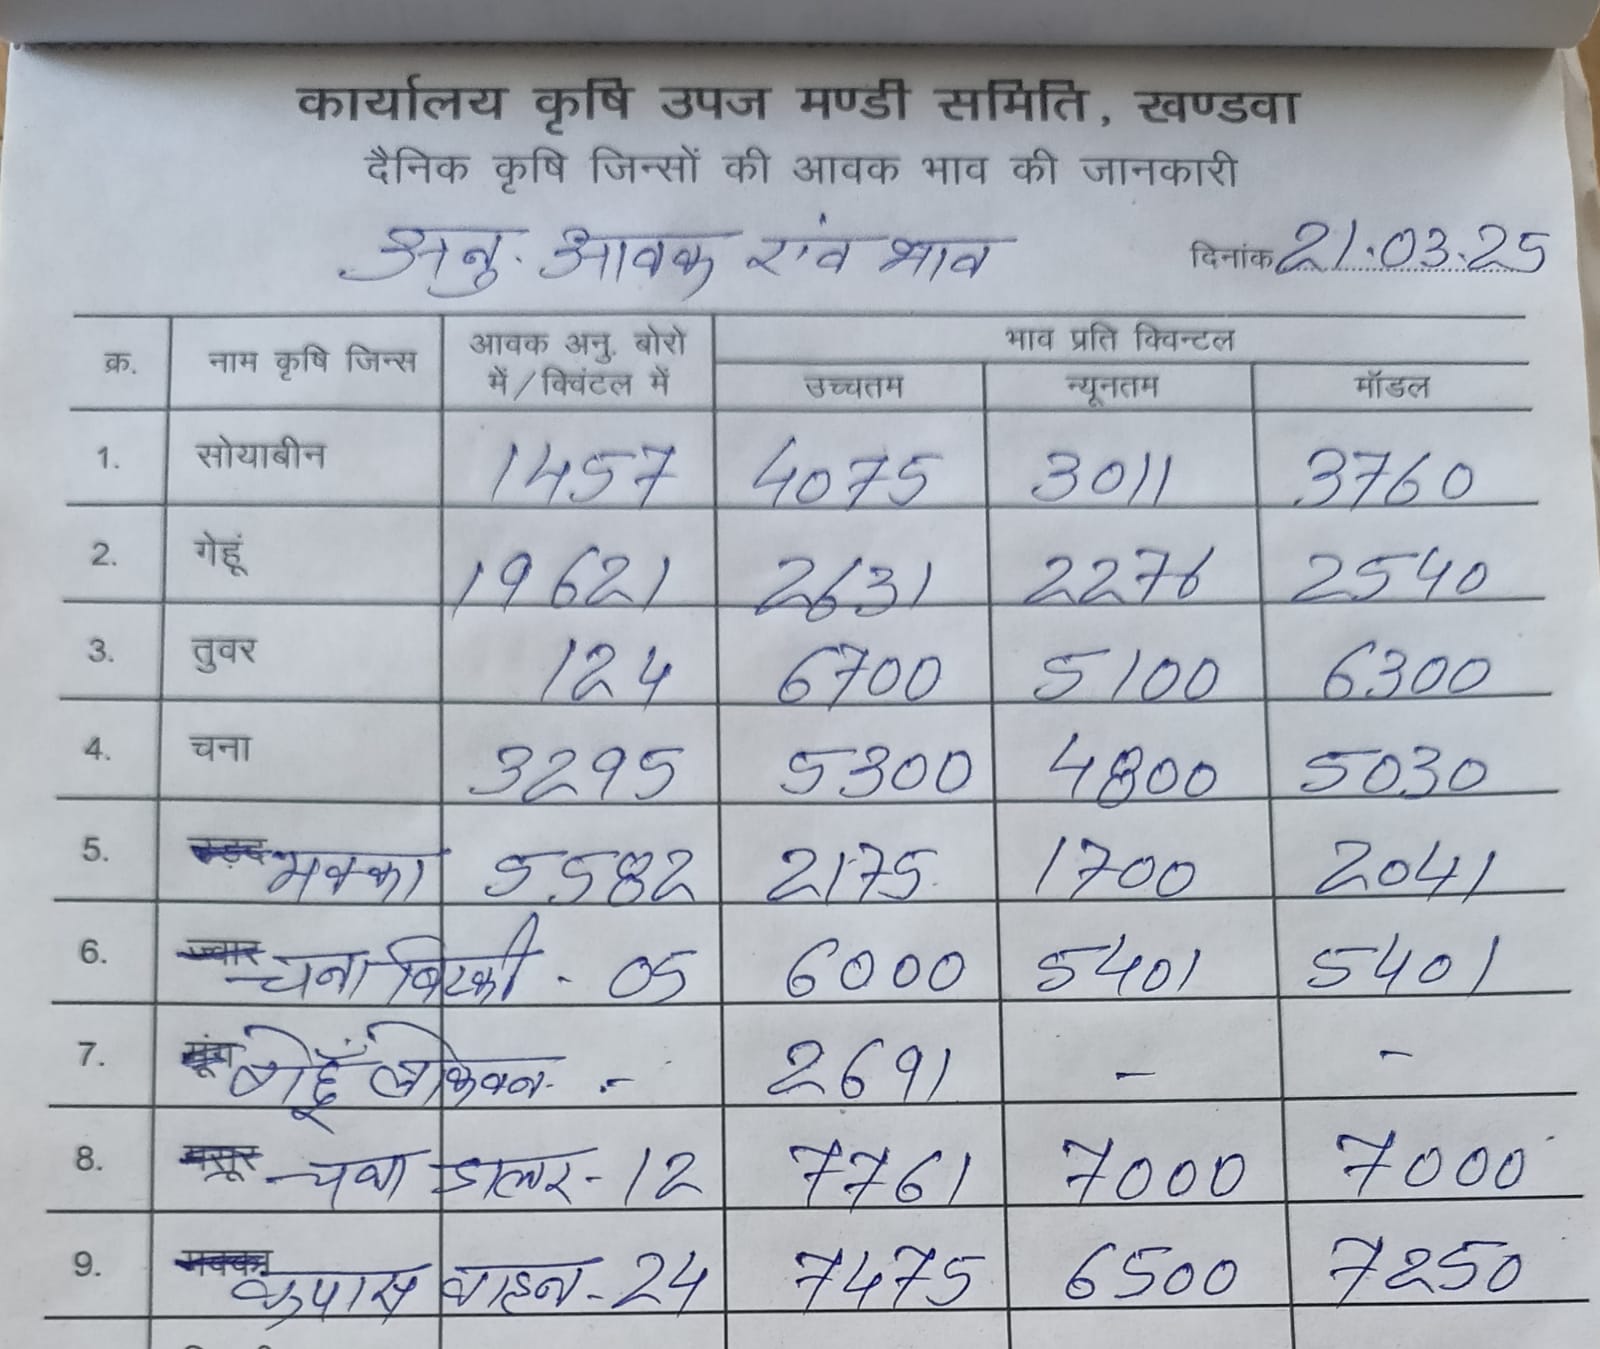 कार्यालय कृषि उपज मण्डी समिति, खण्डवा
दैनिक कृषि जिन्सों की आवक भाव की जानकारी
अनु. आवक एंव भाव दिनांक 21.03.25
क्र. नाम कृषि जिन्स आवक अनु. बोरो में/क्विंटल में भाव प्रति क्विन्टल
उच्चतम न्यूनतम मॉडल
1. सोयाबीन 1457 4075 3011 3760
2. गेहूं 19621 2631 2276 2540
3. तुवर 124 6700 5100 6300
4. चना 3295 5300 4800 5030
5. मक्का 5582 2175 1700 2041
6. ज्वार चना बिटकी - 05 6000 5401 5401
7. मूंग गेहूँ - 2691 - -
8. मसूर चना डालर - 12 7761 7000 7000
9. मक्का कपास वाहन - 24 7475 6500 7250